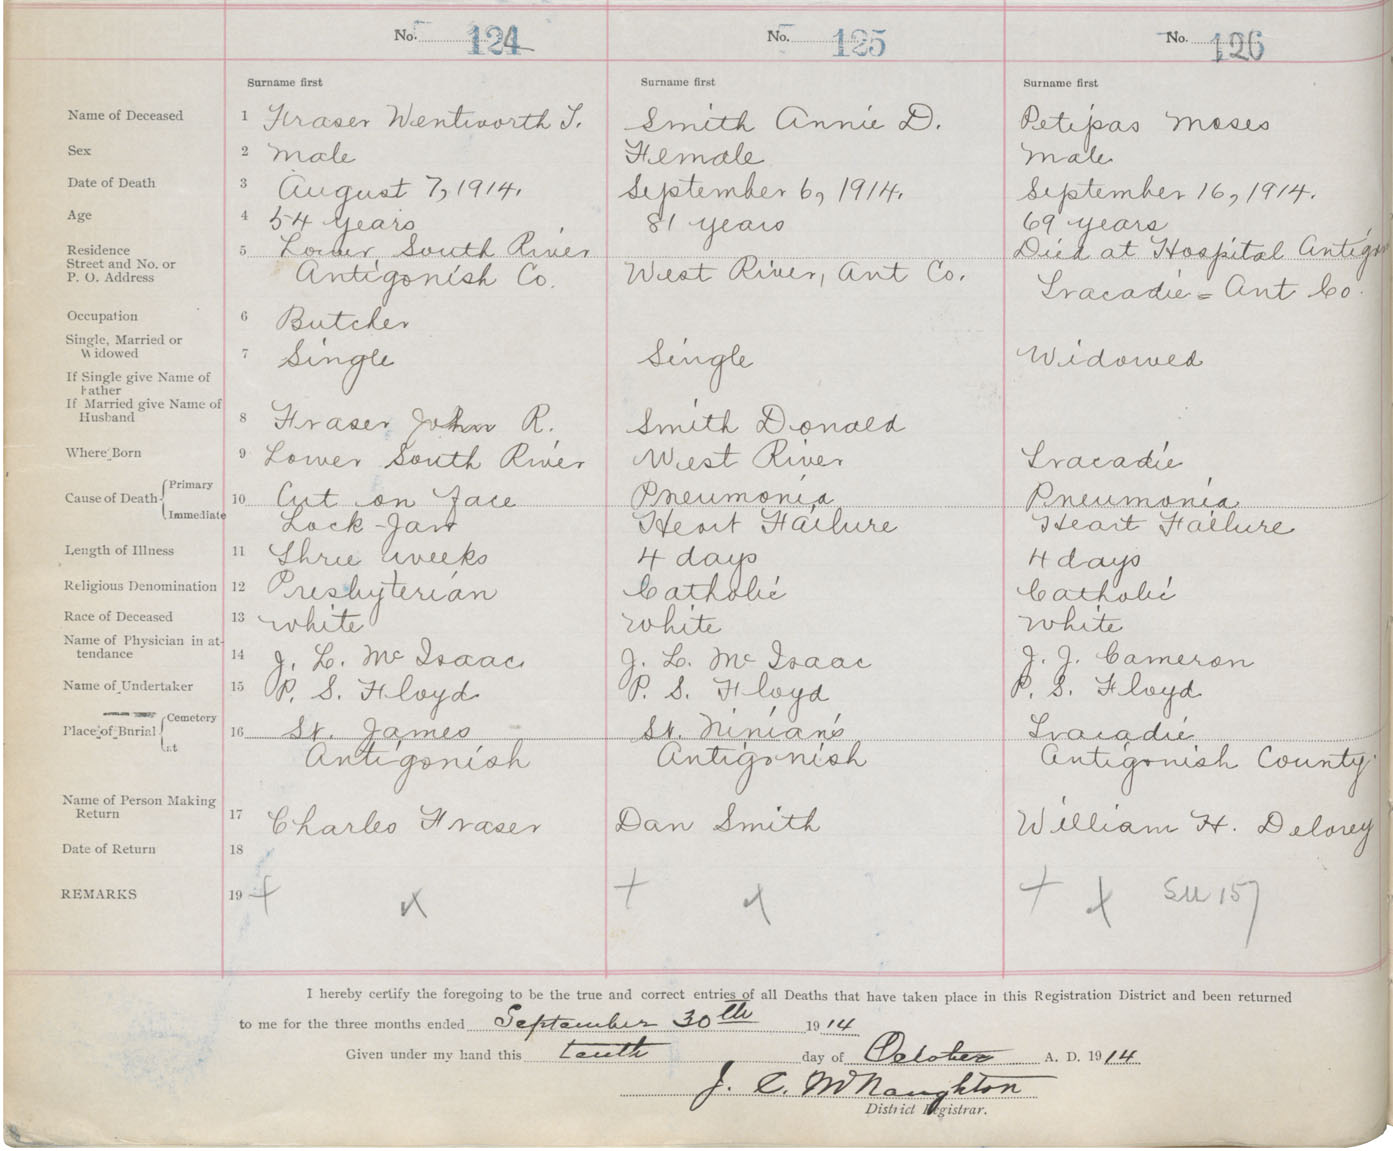 No. 124 No. 125 No. 126
Surname first Surname first Surname first
Name of Deceased 1 Fraser Wentworth T. Smith Annie D. Petipas Moses
Sex 2 Male Female Male
Date of Death 3 August 7, 1914. September 6, 1914. September 16, 1914.
Age 4 54 years 81 years 69 years
Residence 5 Lower South River Died at Hospital Antigon
Street and No. or
P. O. Address Antigonish Co. West River, Ant Co. Tracadie = Ant Co.
Occupation 6 Butcher
Single, Married or
Widowed 7 Single Single Widowed
If Single give Name of
Father
If Married give Name of
Husband 8 Fraser John R. Smith Donald
Where Born 9 Lower South River West River Tracadie
Cause of Death Primary 10 Cut on face Pneumonia Pneumonia
Immediate Lock-Jaw Heart Failure Heart Failure
Length of Illness 11 Three weeks 4 days 4 days
Religious Denomination 12 Presbyterian Catholic Catholic
Race of Deceased 13 White White White
Name of Physician in at-
tendance 14 J. L. McIsaac J. L. McIsaac J. J. Cameron
Name of Undertaker 15 P. S. Floyd P. S. Floyd P. S. Floyd
Place of Burial Cemetery 16 St. James St. Ninian's Tracadie
at Antigonish Antigonish Antigonish County
Name of Person Making
Return 17 Charles Fraser Dan Smith William H. Delorey
Date of Return 18
REMARKS 19 + x + x + x SM 157
I hereby certify the foregoing to be the true and correct entries of all Deaths that have taken place in this Registration District and been returned
to me for the three months ended September 30th 1914
Given under my hand this tenth day of October A. D. 1914
J. C. McNaughton
District Registrar.